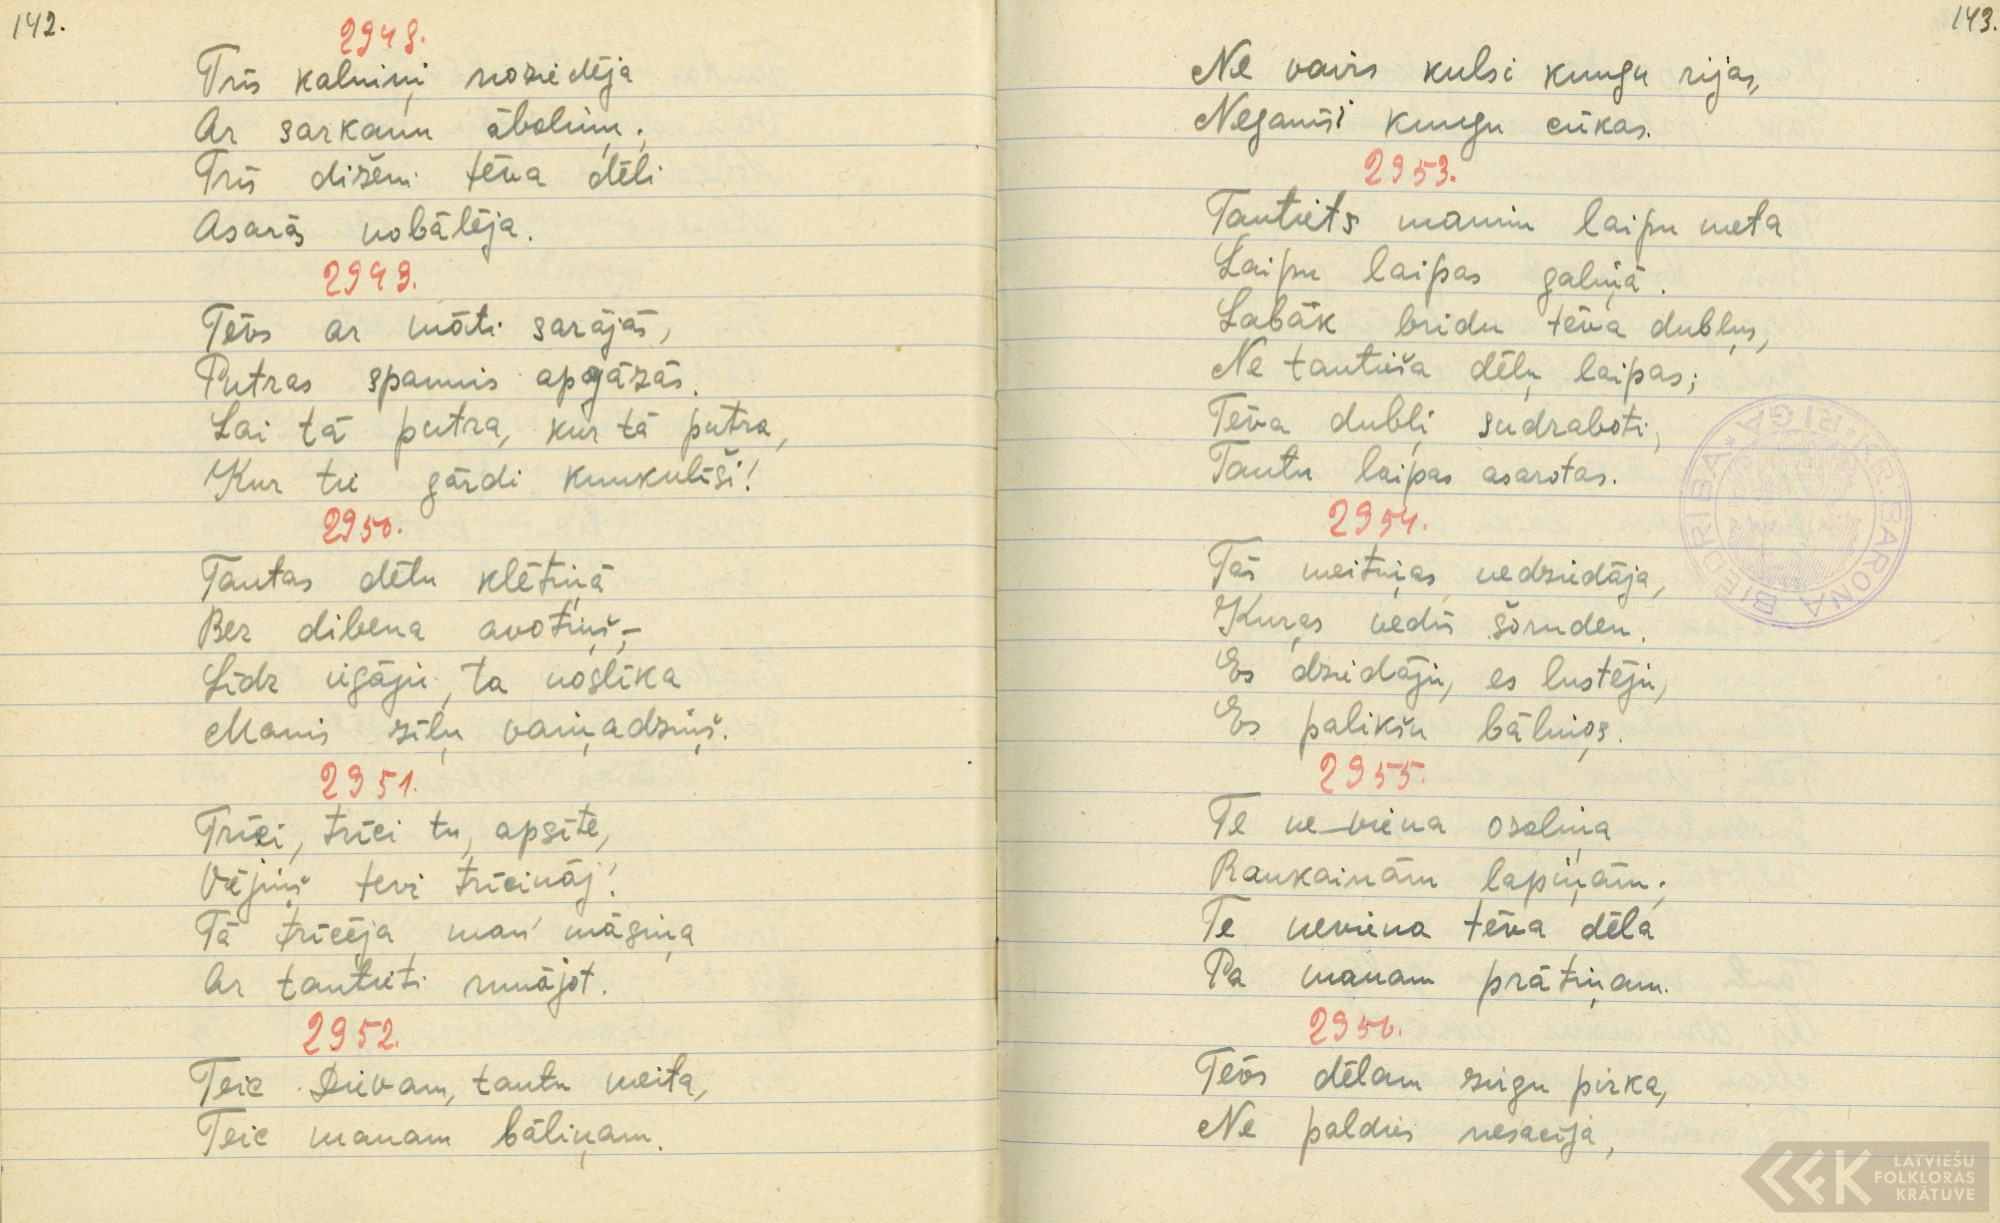 142.
2948.
Trīs kalniņi noziedēja
Ar sarkanu āboliņu;
Trīs dižeņi tēva dēli
Asarās nobālēja.
2949.
Tēvs ar māti sarājās,
Putras spannis apgāzās.
Lai tā putra, kur tā putra,
Kur tie gārdi kunkulīši!
2950.
Tautas dēlu klētiņā
Bez dibena avotiņš, –
Līdz iegāju, ta noslīka
Manis zīļu vaiņadziņš.
2951.
Trīci, trīci tu, apsīte,
Vējiņš tevi trīcināj'.
Tā trīcēja man' māsiņa
Ar tautieti runājot.
2952.
Teic Dievam, tautu meita,
Teic manam bāliņam.
143.
Ne vairs kulsi kungu rijas,
Neganīsi kungu cūkas.
2953.
Tautiets mamiņ laipu meta
Laipu laipas galiņā.
Labāk bridu tēva dubļus,
Ne tautieša dēļu laipas;
Tēva dubļi sudraboti,
Tautu laipas asarotas.
2954.
Tās meitiņas nedziedāja,
Kuŗas vedīs šoruden.
Es dziedāju, es lustēju,
Es palikšu bāliņos.
2955.
Te ne viena ozoliņa
Raukainām lapiņām;
Te neviena tēva dēla
Pa manam prātiņam.
2956.
Tēvs dēlam zirgu pirka,
Ne paldies nesacīja,
KR. BARONA BIEDRĪBA * RĪGĀ *
LATVIEŠU
FOLKLORAS
KRĀTUVE